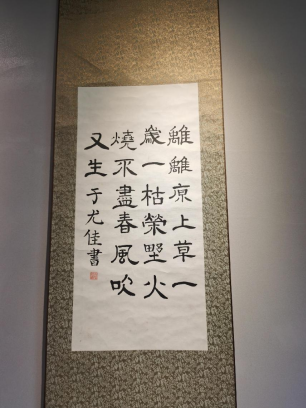 離離原上草一
歲一枯榮野火
燒不盡春風吹
又生 于尤佳書